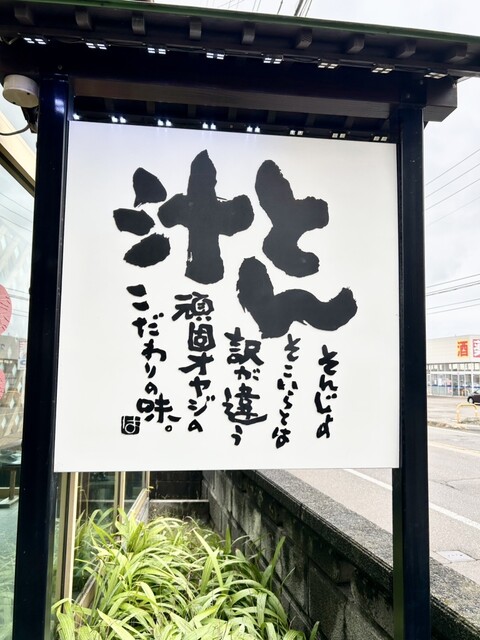 とん汁
そんじょ
そこいらとは
訳が違う
頑固オヤジの
こだわりの味。
酒